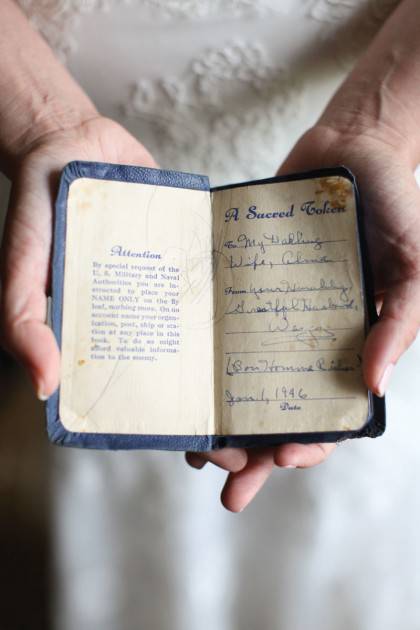 Attention
By special request of the
U. S. Military and Naval
Authorities you are in-
structed to place your
NAME ONLY on the fly
leaf, nothing more. On no
account name your organ-
ization, post, ship or sta-
tion at any place in this
book. To do so might
afford valuable informa-
tion to the enemy.
A Sacred Token
To My Darling
Wife, Alma
From your Humbly,
Greatful Husband,
(Bon Homme Richard)
Jan 1, 1946
Date